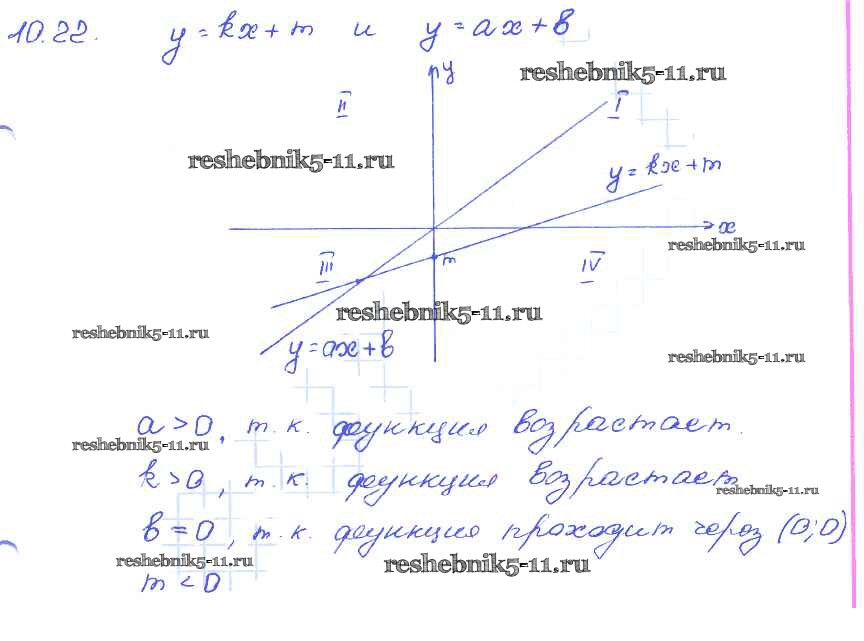 10.22. y = kx + m и y = ax + b
y
reshebnik5-11.ru
II
I
reshebnik5-11.ru
y = kx + m
x
reshebnik5-11.ru
III
m
IV
reshebnik5-11.ru
reshebnik5-11.ru
y = ax + b
reshebnik5-11.ru
a > 0, т.к. функция возрастает.
reshebnik5-11.ru
k > 0, т.к. функция возрастает
reshebnik5-11.ru
b = 0, т.к. функция проходит через (0;0)
reshebnik5-11.ru
reshebnik5-11.ru
m < 0